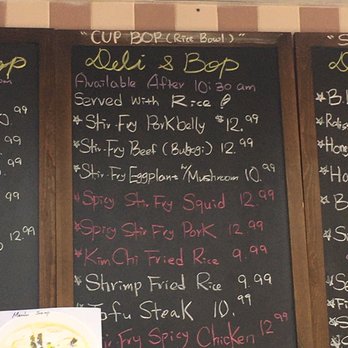 " CUP BOP (Rice Bowl) "
Deli & Bop
Available After 10:30 am
Served with Rice &
* Stir-Fry Porkbelly $12.99
* Stir-Fry Beef (Bulgogi) 12.99
* Stir-Fry Eggplant w/Mushroom 10.99
* Spicy Stir Fry Squid 12.99
* Spicy Stir Fry Pork 12.99
* Kim Chi Fried Rice 9.99
* Shrimp Fried Rice 9.99
* Tofu Steak 10.99
Fry Spicy Chicken 12.99
op
12.99
99
.99
9
12.99
99
" S
D
* B.
* Hon
* Ho
* B
Mandu Soup